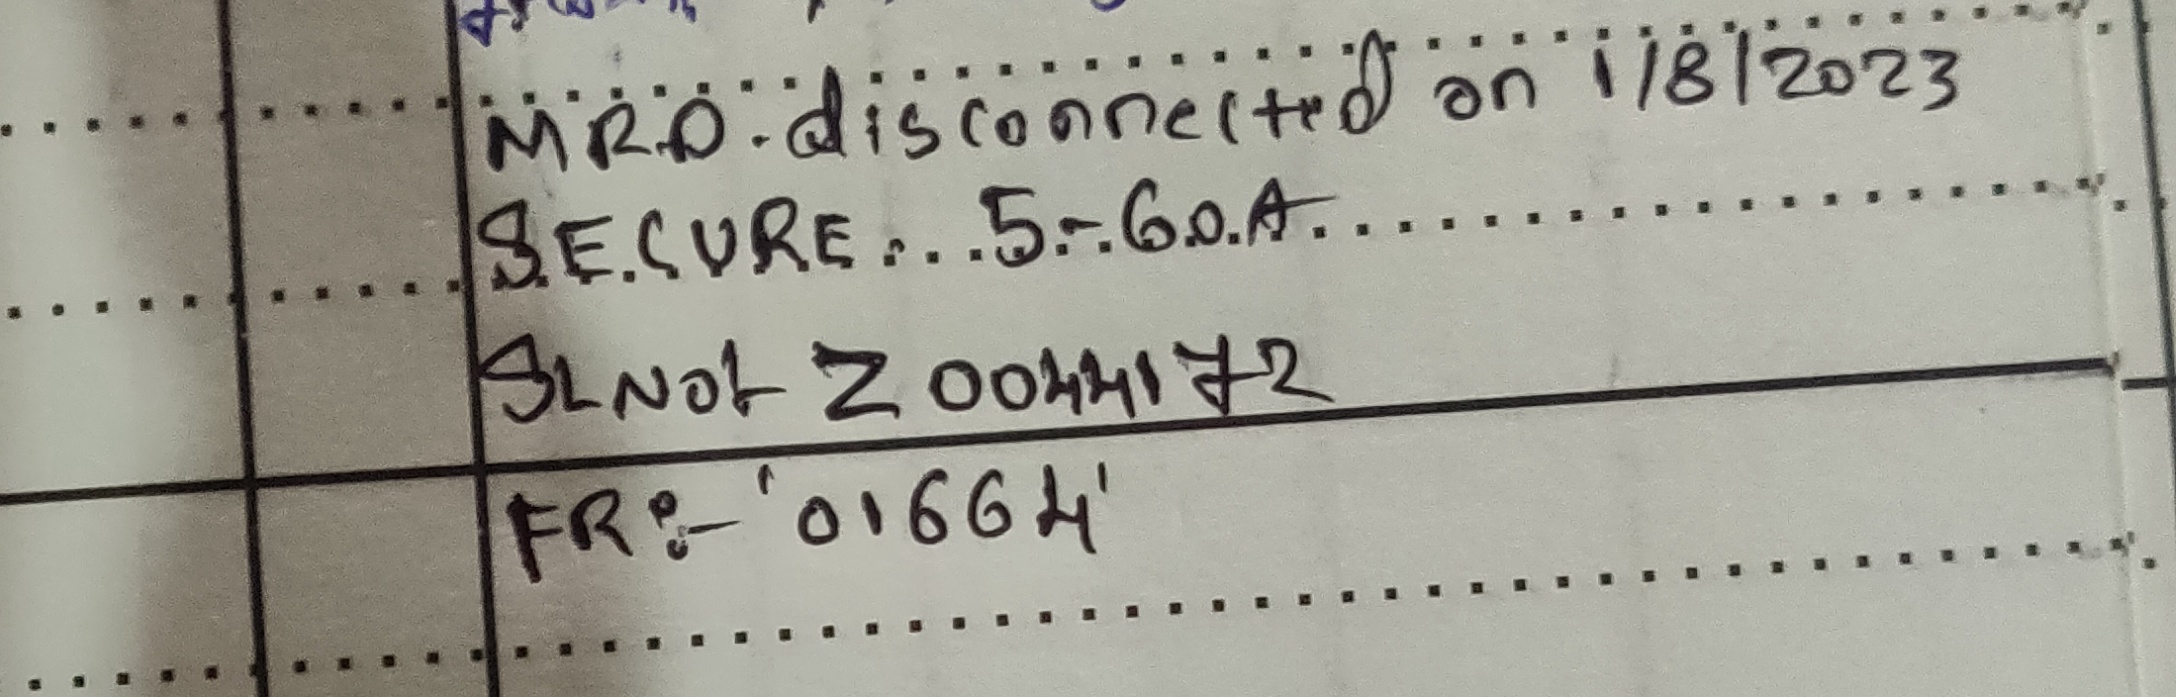 MRD. disconnected on 1/8/2023
SECURE... 5-60A
SLNO:- Z 0044172
FR:- '01664'